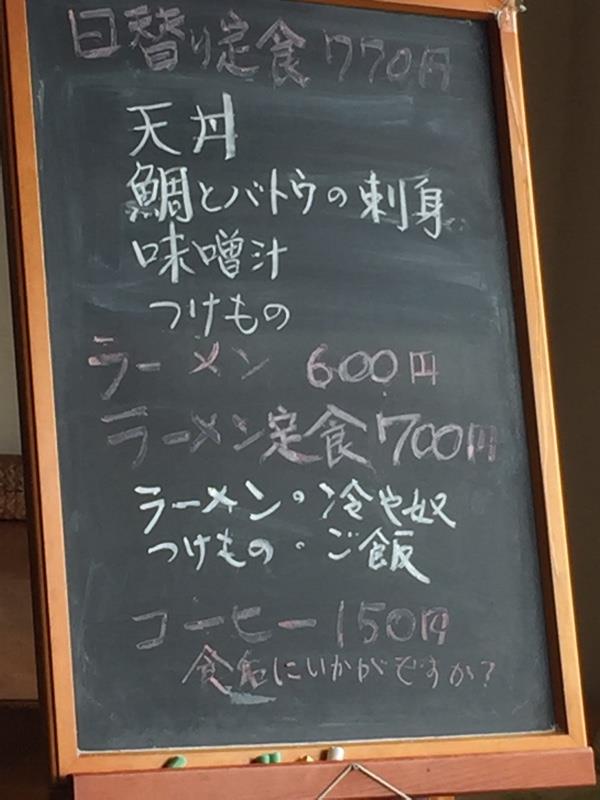 日替り定食 770円
天丼
鯛とバトウの刺身
味噌汁
つけもの
ラーメン 600円
ラーメン定食 700円
ラーメン。冷や奴
つけもの。ご飯
コーヒー 150円
食后にいかがですか?